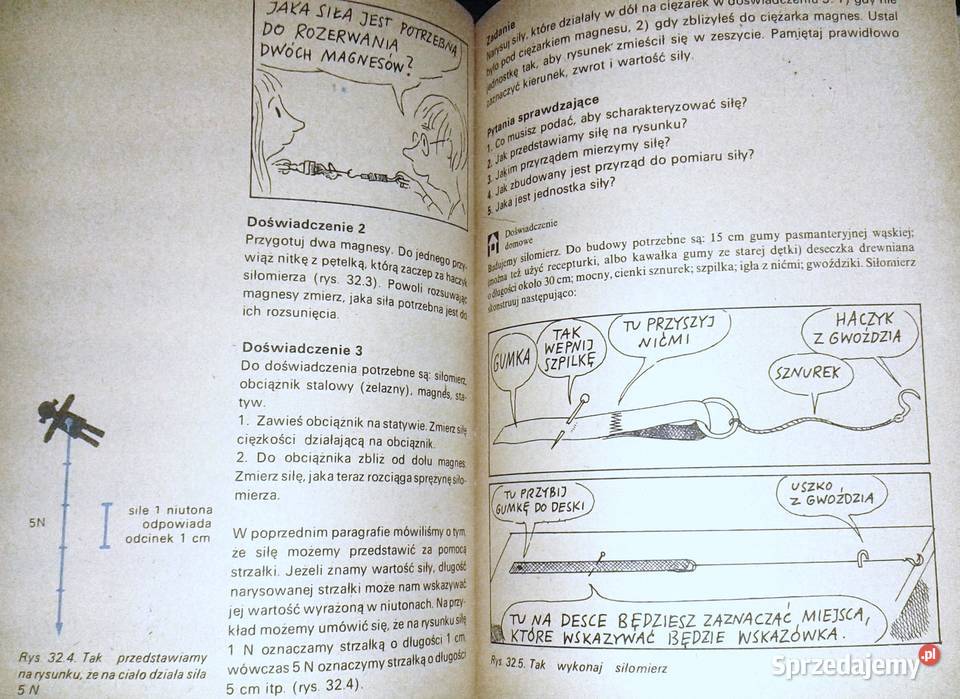 JAKA SIŁA JEST POTRZEBNA
DO ROZERWANIA
DWÓCH MAGNESÓW?
Doświadczenie 2
Przygotuj dwa magnesy. Do jednego przy-
wiąż nitkę z pętelką, którą zaczep za haczyk
siłomierza (rys. 32.3). Powoli rozsuwając
magnesy zmierz, jaka siła potrzebna jest do
ich rozsunięcia.
Doświadczenie 3
Do doświadczenia potrzebne są: siłomierz,
obciążnik stalowy (żelazny), magnes, sta-
tyw.
1. Zawieś obciążnik na statywie. Zmierz siłę
ciężkości działającą na obciążnik.
2. Do obciążnika zbliż od dołu magnes.
Zmierz siłę, jaka teraz rozciąga sprężynę siło-
mierza.
W poprzednim paragrafie mówiliśmy o tym,
że siłę możemy przedstawić za pomocą
strzałki. Jeżeli znamy wartość siły, długość
narysowanej strzałki może nam wskazywać
jej wartość wyrażoną w niutonach. Na przy-
kład możemy umówić się, że na rysunku siłę
1 N oznaczamy strzałką o długości 1 cm,
wówczas 5 N oznaczymy strzałką o długości
5 cm itp. (rys. 32.4).
5N
sile 1 niutona
odpowiada
odcinek 1 cm
Rys 32.4. Tak przedstawiamy
na rysunku, że na ciało działa siła
5 N
Zadanie
Narysuj siły, które działały w dół na ciężarek w doświadczeniu 3: 1) gdy nie
było pod ciężarkiem magnesu, 2) gdy zbliżyłeś do ciężarka magnes. Ustal
jednostkę tak, aby rysunek zmieścił się w zeszycie. Pamiętaj prawidłowo
zaznaczyć kierunek, zwrot i wartość siły.
Pytania sprawdzające
1. Co musisz podać, aby scharakteryzować siłę?
2. Jak przedstawiamy siłę na rysunku?
3. Jakim przyrządem mierzymy siłę?
4. Jak zbudowany jest przyrząd do pomiaru siły?
5. Jaka jest jednostka siły?
Doświadczenie
domowe
Budujemy siłomierz. Do budowy potrzebne są: 15 cm gumy pasmanteryjnej wąskiej;
(można też użyć recepturki, albo kawałka gumy ze starej dętki) deseczka drewniana
o długości około 30 cm; mocny, cienki sznurek; szpilka; igła z nićmi; gwoździki. Siłomierz
skonstruuj następująco:
GUMKA
TAK
WEPNIJ
SZPILKĘ
TU PRZYSZYJ
NIĆMI
SZNUREK
HACZYK
Z GWOŹDZIA
TU PRZYBIJ
GUMKĘ DO DESKI
USZKO
Z GWOŹDZIA
TU NA DESCE BĘDZIESZ ZAZNACZAĆ MIEJSCA,
KTÓRE WSKAZYWAĆ BĘDZIE WSKAZÓWKA.
Rys 32.5. Tak wykonaj siłomierz
Sprzedajemy.pl